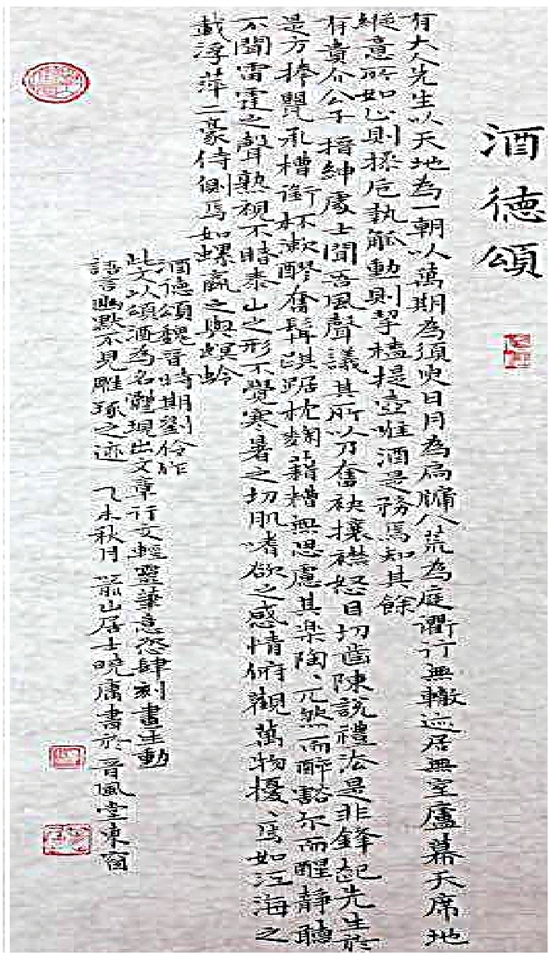 酒德頌
有大人先生以天地為一朝以萬期為須臾日月為扃牖八荒為庭衢行無轍迹居無室廬幕天席地
縱意所如止則操卮執觚動則挈榼提壺唯酒是務焉知其餘
有貴介公子搢紳處士聞吾風聲議其所以乃奮袂攘襟怒目切齒陳說禮法是非鋒起先生於
是方捧甖承槽銜杯漱醪奮髯踑踞枕麴藉糟無思慮其樂陶、兀然而醉豁尔而醒靜聽
不聞雷霆之聲熟視不睹泰山之形不覺寒暑之切肌嗜欲之感情俯觀萬物擾、焉如江海之
載浮萍二豪侍側焉如蜾蠃之與螟蛉
酒德頌魏晉時期劉伶作
此文以頌酒為名體現出文章行文輕靈筆意恣肆刻畫生動
語言幽默不見雕琢之迹 乙未秋月 山居士曉庸書於晉風堂東窗